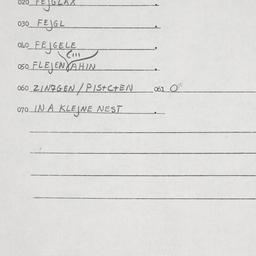 020 FEJGLAX
030 FEJGL.
040 FEJGELE.
050 FLEJEN AHIN.
060 ZINGEN / PISTCTEN 061 0
070 IN A KLEJNE NEST.